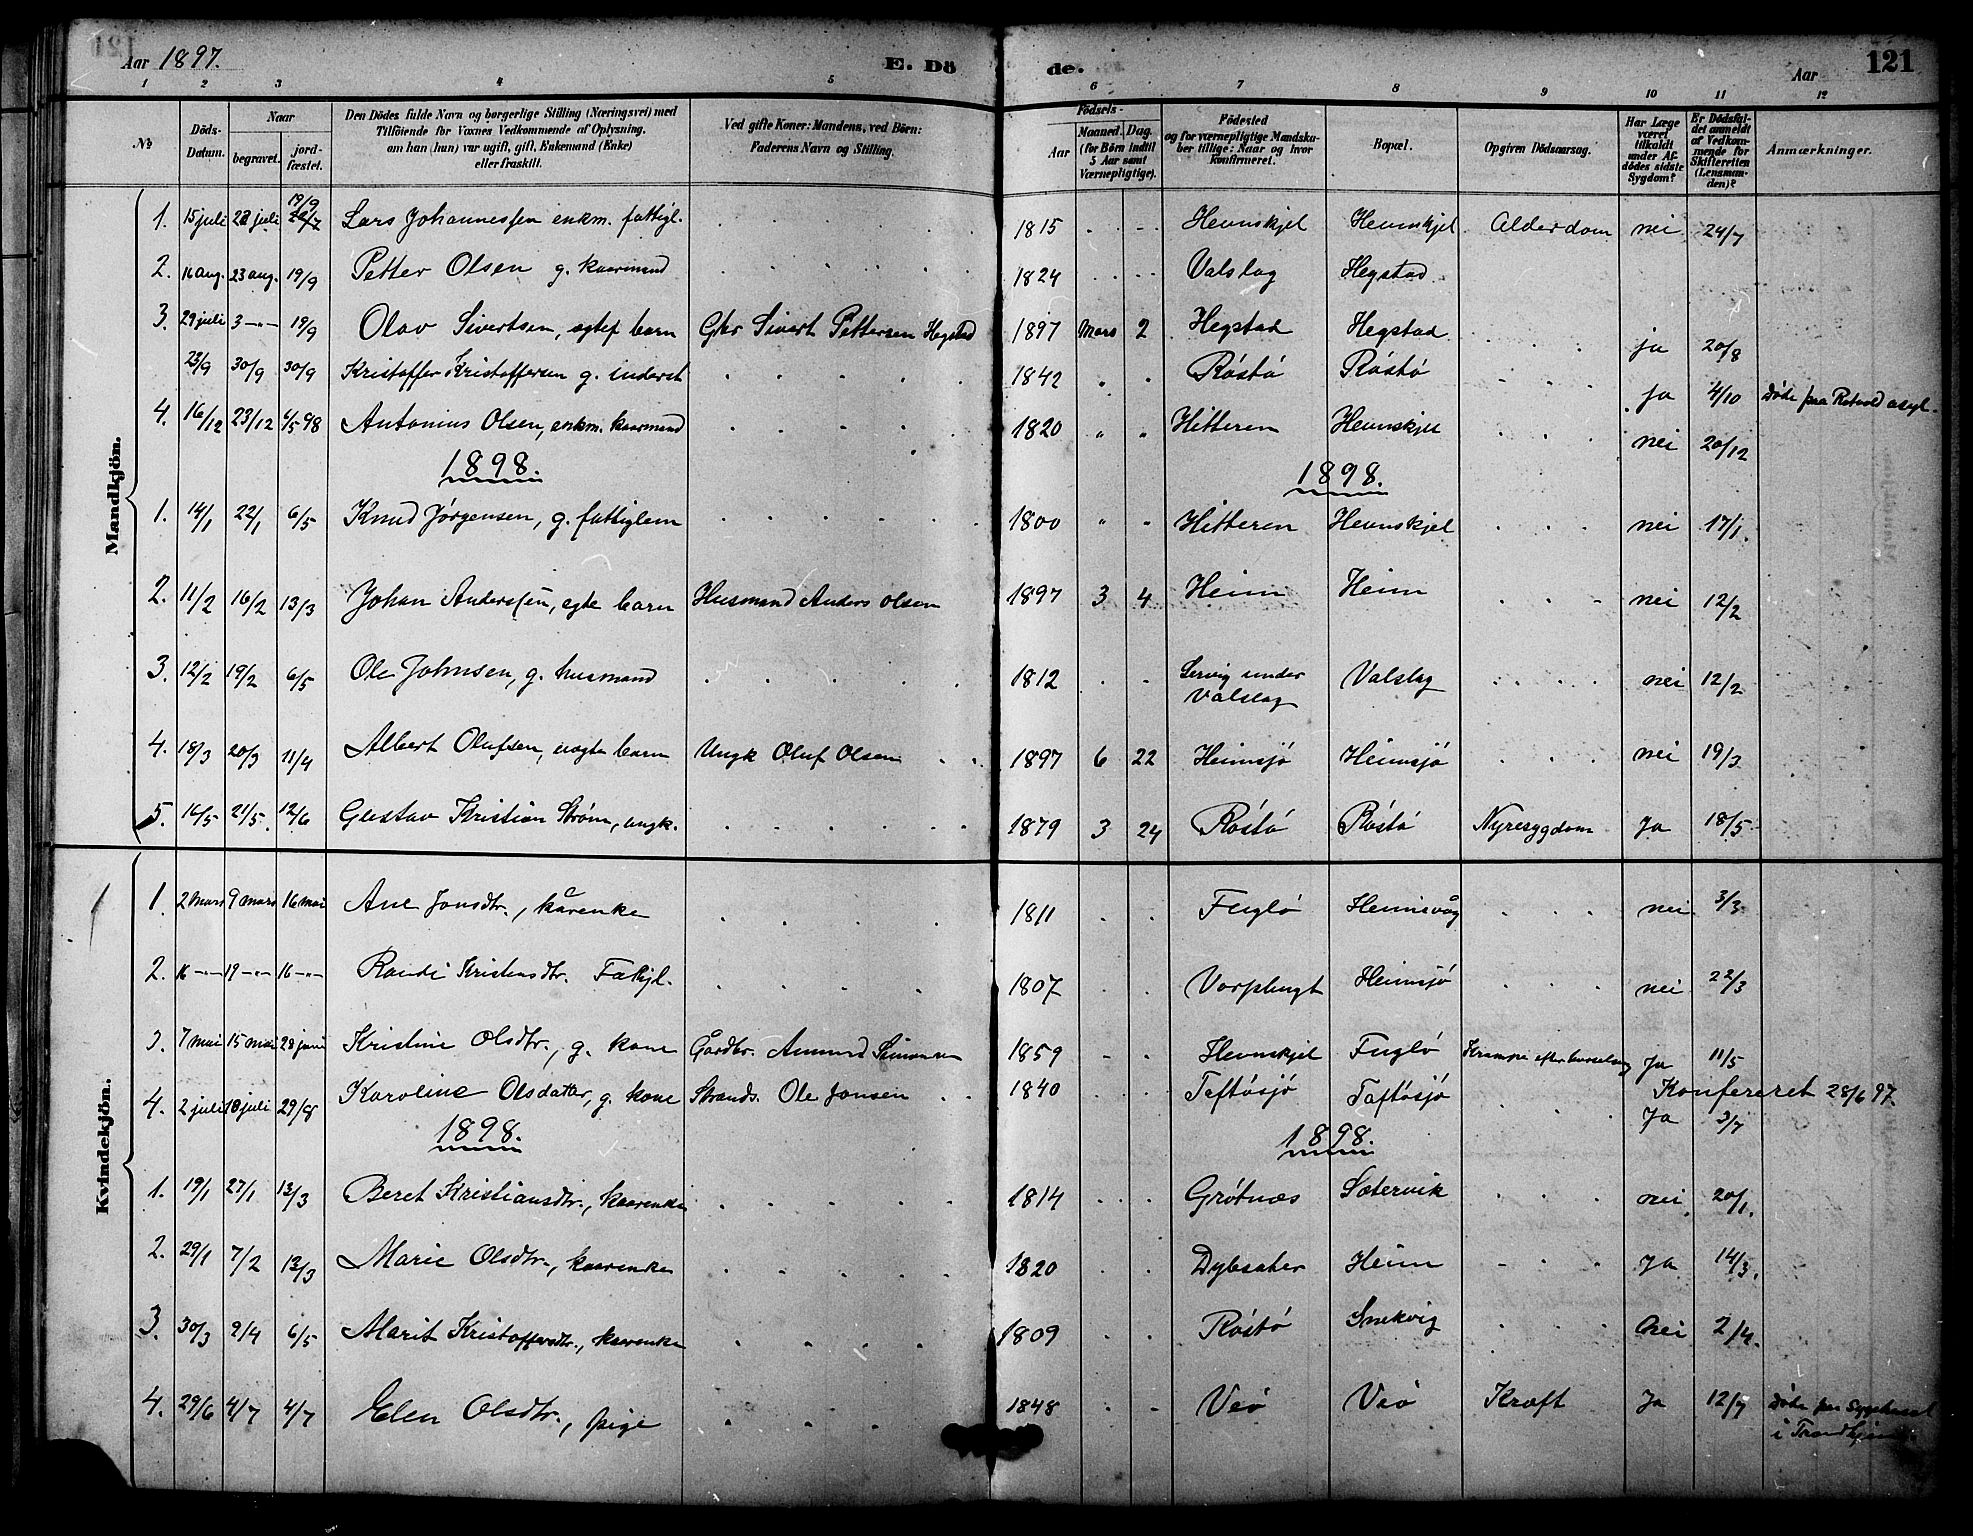 Aar 1897. E. Dö de. Aar 121
1 2 3 4 5 6 7 8 9 10 11 12
No Döds-Datum. Naar begravet. jord-fæstet. Den Dödes fulde Navn og borgerlige Stilling (Næringsvei) med Tilföiende for Voxnes Vedkommende af Oplysning, om han (hun) var ugift, gift, Enkemand (Enke) eller fraskilt. Ved gifte Koner: Mandens, ved Börn: Faderens Navn og Stilling. Födsels- Aar Maaned. Dag. (for Börn indtil 5 Aar samt Værnepligtige). Födested og for værnepligtige Mandskaber tillige: Naar og hvor konfirmeret. Bopæl. Opgiven Dödsaarsag. Har Læge været tilkaldt under Afdödes sidste Sygdom? Er Dödsfaldet anmeldt af Vedkommende for Skifteretten (Lensmanden)? Anmærkninger.
Mandkjön.
1. 15 juli 22 juli 19/9 Lars Johannessen enkm. fattigl. 1815 Hevnskjel Hevnskjel Alderdom nei 24/7
2. 16 aug. 23 aug. 19/9 Petter Olsen g. kaarmand 1824 Valslag Hegstad
3. 29 juli 3 -"- 19/9 Olav Sivertsen, egtef barn Gbr Sivert Pettersen Hegstad 1897 Mars 2 Hegstad Hegstad ja 20/8
23/9 30/9 30/9 Kristoffer Kristoffersen g. inderst 1842 " " Røstø Røstø ja 4/10 Døde paa Rotvold asyl.
4. 16/12 23/12 6/5 98 Antonius Olsen, enkm. kaarmand 1820 " " Hitteren Hevnskjel nei 20/12
1898. 1898.
1. 14/1 22/1 6/5 Knud Jørgensen, g. fattiglem 1800 " " Hitteren Hevnskjel nei 17/1.
2. 11/2 16/2 13/3 Johan Anderssen, egte barn Husmand Anders Olsen 1897 3 4 Heim Heim nei 12/2
3. 12/2 19/2 6/5 Ole Johnsen, g. husmand 1812 under Valslag Valslag nei 12/2
4. 18/3 20/3 11/4 Albert Olufsen, uegte barn Ungk Oluf Olsen 1897 6 22 Heimsjø Heimsjø nei 19/3
5. 16/5 21/5. 12/6 Gustav Kristian Strøm, ungk. 1879 3 24 Røstø Røstø Nyresygdom Ja 18/5
Kvindekjön.
1. 2 mars 9 mars 16 mai Ane Jonsdtr., kårenke 1811 Fuglø Heimsvåg nei 3/3
2. 16 -"- 19 -"- 16 -"- Randi Kristensdtr. Fattigl. 1807 Heimsjø nei 22/3
3. 7 mai 15 mai 28 juni Kristine Olsdtr., g. kone Gårdbr. Amund Simonsen 1859 Hevnskjel Fuglø Krampe efter barselseng Ja 11/5
4. 2 juli 18 juli 29/8 Karoline Olsdatter, g. kone Strands. Ole Jonsen 1840 Taftøsjø Taftøsjø Konfereret 28/6 97. Ja 3/7
1898. 1898.
1. 19/1 27/1 13/3 Beret Kristiansdtr., kaarenke 1814 Grøtnæs Sætervik nei 20/1.
2. 29/1 7/2 13/3 Marie Olsdtr., kaarenke 1820 Dybsæter Heim Ja 14/3.
3. 30/3 9/4 6/5 Marit Kristoffersdtr., kaarenke 1809 Røstø Snekvig nei 2/4.
4. 29/6 4/7 4/7 Elen Olsdtr., pige 1848 Veø Veø Kræft Ja 12/7 Døde paa Sygehuset i Trondhjem.